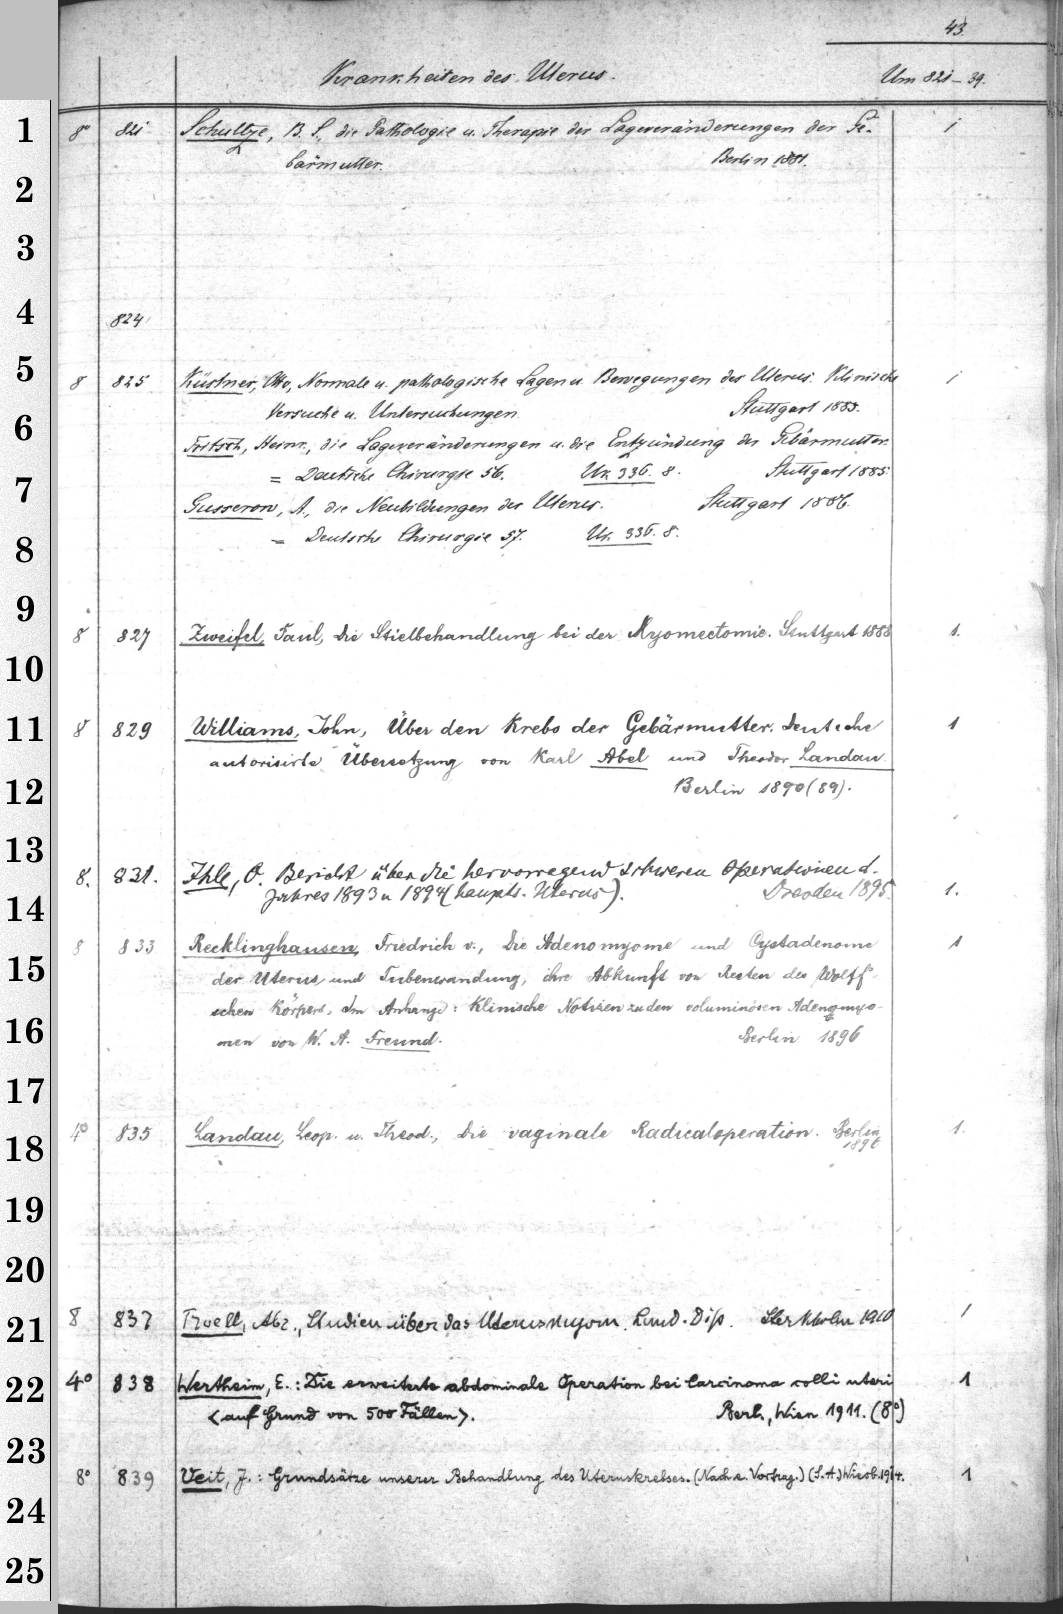 43.
Krankheiten des Uterus. Um 821-39.
1 8° 821 Schultze, B. S., die Pathologie u. Therapie der Lageveränderungen der Ge- 1
bärmutter. Berlin 1881.
2
3
4 824
5 8 825 Küstner, Otto, Normale u. pathologische Lagen u. Bewegungen des Uterus. Klinische 1
Versuche u. Untersuchungen. Stuttgart 1885.
6 Fritsch, Heinr., die Lageveränderungen u. die Entzündung der Gebärmutter.
7 = Deutsche Chirurgie 56. Ur. 336. 8. Stuttgart 1885
Gusserow, A., die Neubildungen des Uterus. Stuttgart 1886.
8 = Deutsche Chirurgie 57. Ur. 336. 8.
9
8 827 Zweifel, Paul, Die Stielbehandlung bei der Myomectomie. Stuttgart 1888 1.
10
11 8 829 Williams, John, Über den Krebs der Gebärmutter. Deutsche 1
autorisirte Übersetzung von Karl Abel und Theodor Landau.
12 Berlin 1890 (89).
13
8. 831. Ihle, O. Bericht über die hervorragend schweren Operationen d.
14 Jahres 1893 u 1894 (haupts. Uterus). Dresden 1895. 1.
8 833 Recklinghausen, Friedrich v., Die Adenomyome und Cystadenome 1
15 der Uterus und Tubenwandung, ihre Abkunft von Resten des Wolff'
schen Körpers. Im Anhange: Klinische Notizen zu den voluminösen Adenomyo-
16 men von W. A. Freund. Berlin 1896
17
18 4° 835 Landau, Leop. u. Theod., Die vaginale Radicaloperation. Berlin 1.
1896
19
20
21 8 837 Troell, Abr., Studien über das Uterusmyom. Lund. Diss. Stockholm 1910 1
22 4° 838 Wertheim, E.: Die erweiterte abdominale Operation bei Carcinoma colli uteri 1
<auf Grund von 500 Fällen>. Berl., Wien 1911. (8°)
23
8° 839 Veit, J.: Grundsätze unserer Behandlung des Uteruskrebses. (Nach e. Vortrag.) (S. A.) Wiesb. 1914. 1
24
25